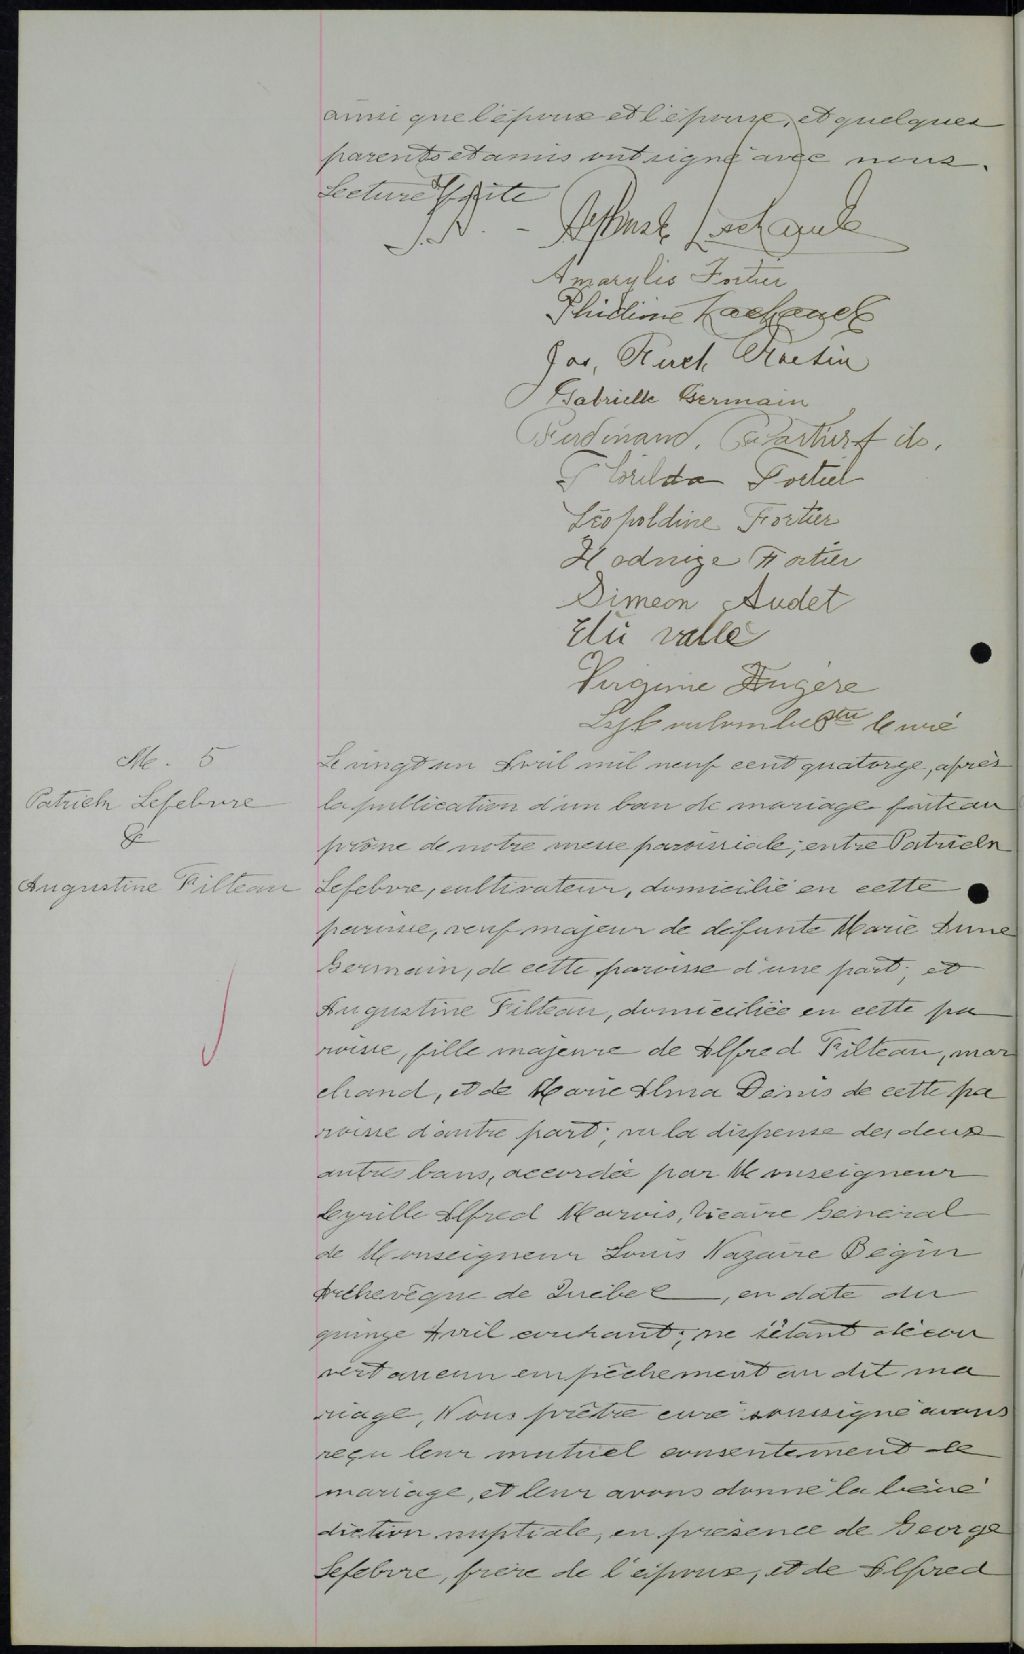 ainsi que l'époux et l'épouse, et quelques
parents et amis ont signé avec nous.
Lecture faite
Alphonse Lachance
Amarylis Fortier
Phidime Lachance
Jos,
Gabrielle Germain
Ferdinand, fils,
Florilda Fortier
Léopoldine Fortier
Hedwige Fortier
Simeon Audet
Vallé
Virginie Fugère
Ptre Curé
M. 5
Patrick Lefebvre
&
Augustine Filteau
Le vingt un Avril mil neuf cent quatorze, après
la publication d'un ban de mariage faite au
prône de notre messe paroissiale, entre Patrick
Lefebvre, cultivateur, domicilié en cette
paroisse, veuf majeur de défunte Marie Anne
Germain, de cette paroisse d'une part; et
Augustine Filteau, domiciliée en cette pa
roisse, fille majeure de Alfred Filteau, mar
chand, et de Marie Alma Denis de cette pa
roisse d'autre part; vu la dispense des deux
autres bans, accordée par Monseigneur
Cyrille Alfred Marois, Vicaire Général
de Monseigneur Louis Nazaire Bégin
Archevêque de Québec, en date du
quinze Avril courant; ne s'étant décou
vert aucun empêchement au dit ma
riage, Nous prêtre curé soussigné avons
reçu leur mutuel consentement de
mariage, et leur avons donné la béné
diction nuptiale, en présence de George
Lefebvre, frère de l'époux, et de Alfred